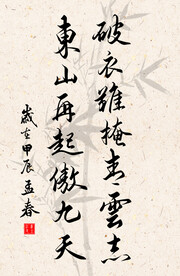 破衣難掩青雲志
東山再起傲九天
歲在甲辰孟春